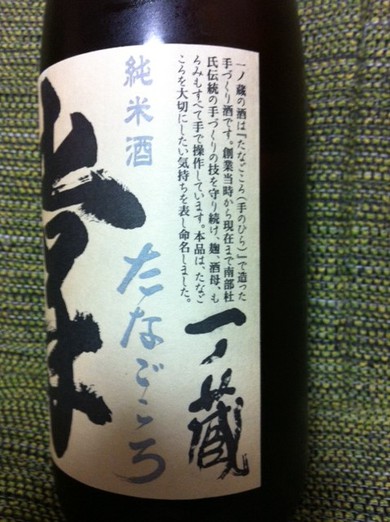 一ノ蔵の酒は『たなごころ(手のひら)』で造った
手づくり酒です。創業当時から現在まで南部杜
氏伝統の手づくりの技を守り続け、麹、酒母、も
ろみもすべて手で操作しています。本品は、たなご
ころを大切にしたい気持ちを表し命名しました。
一ノ蔵
純米酒
たなごころ